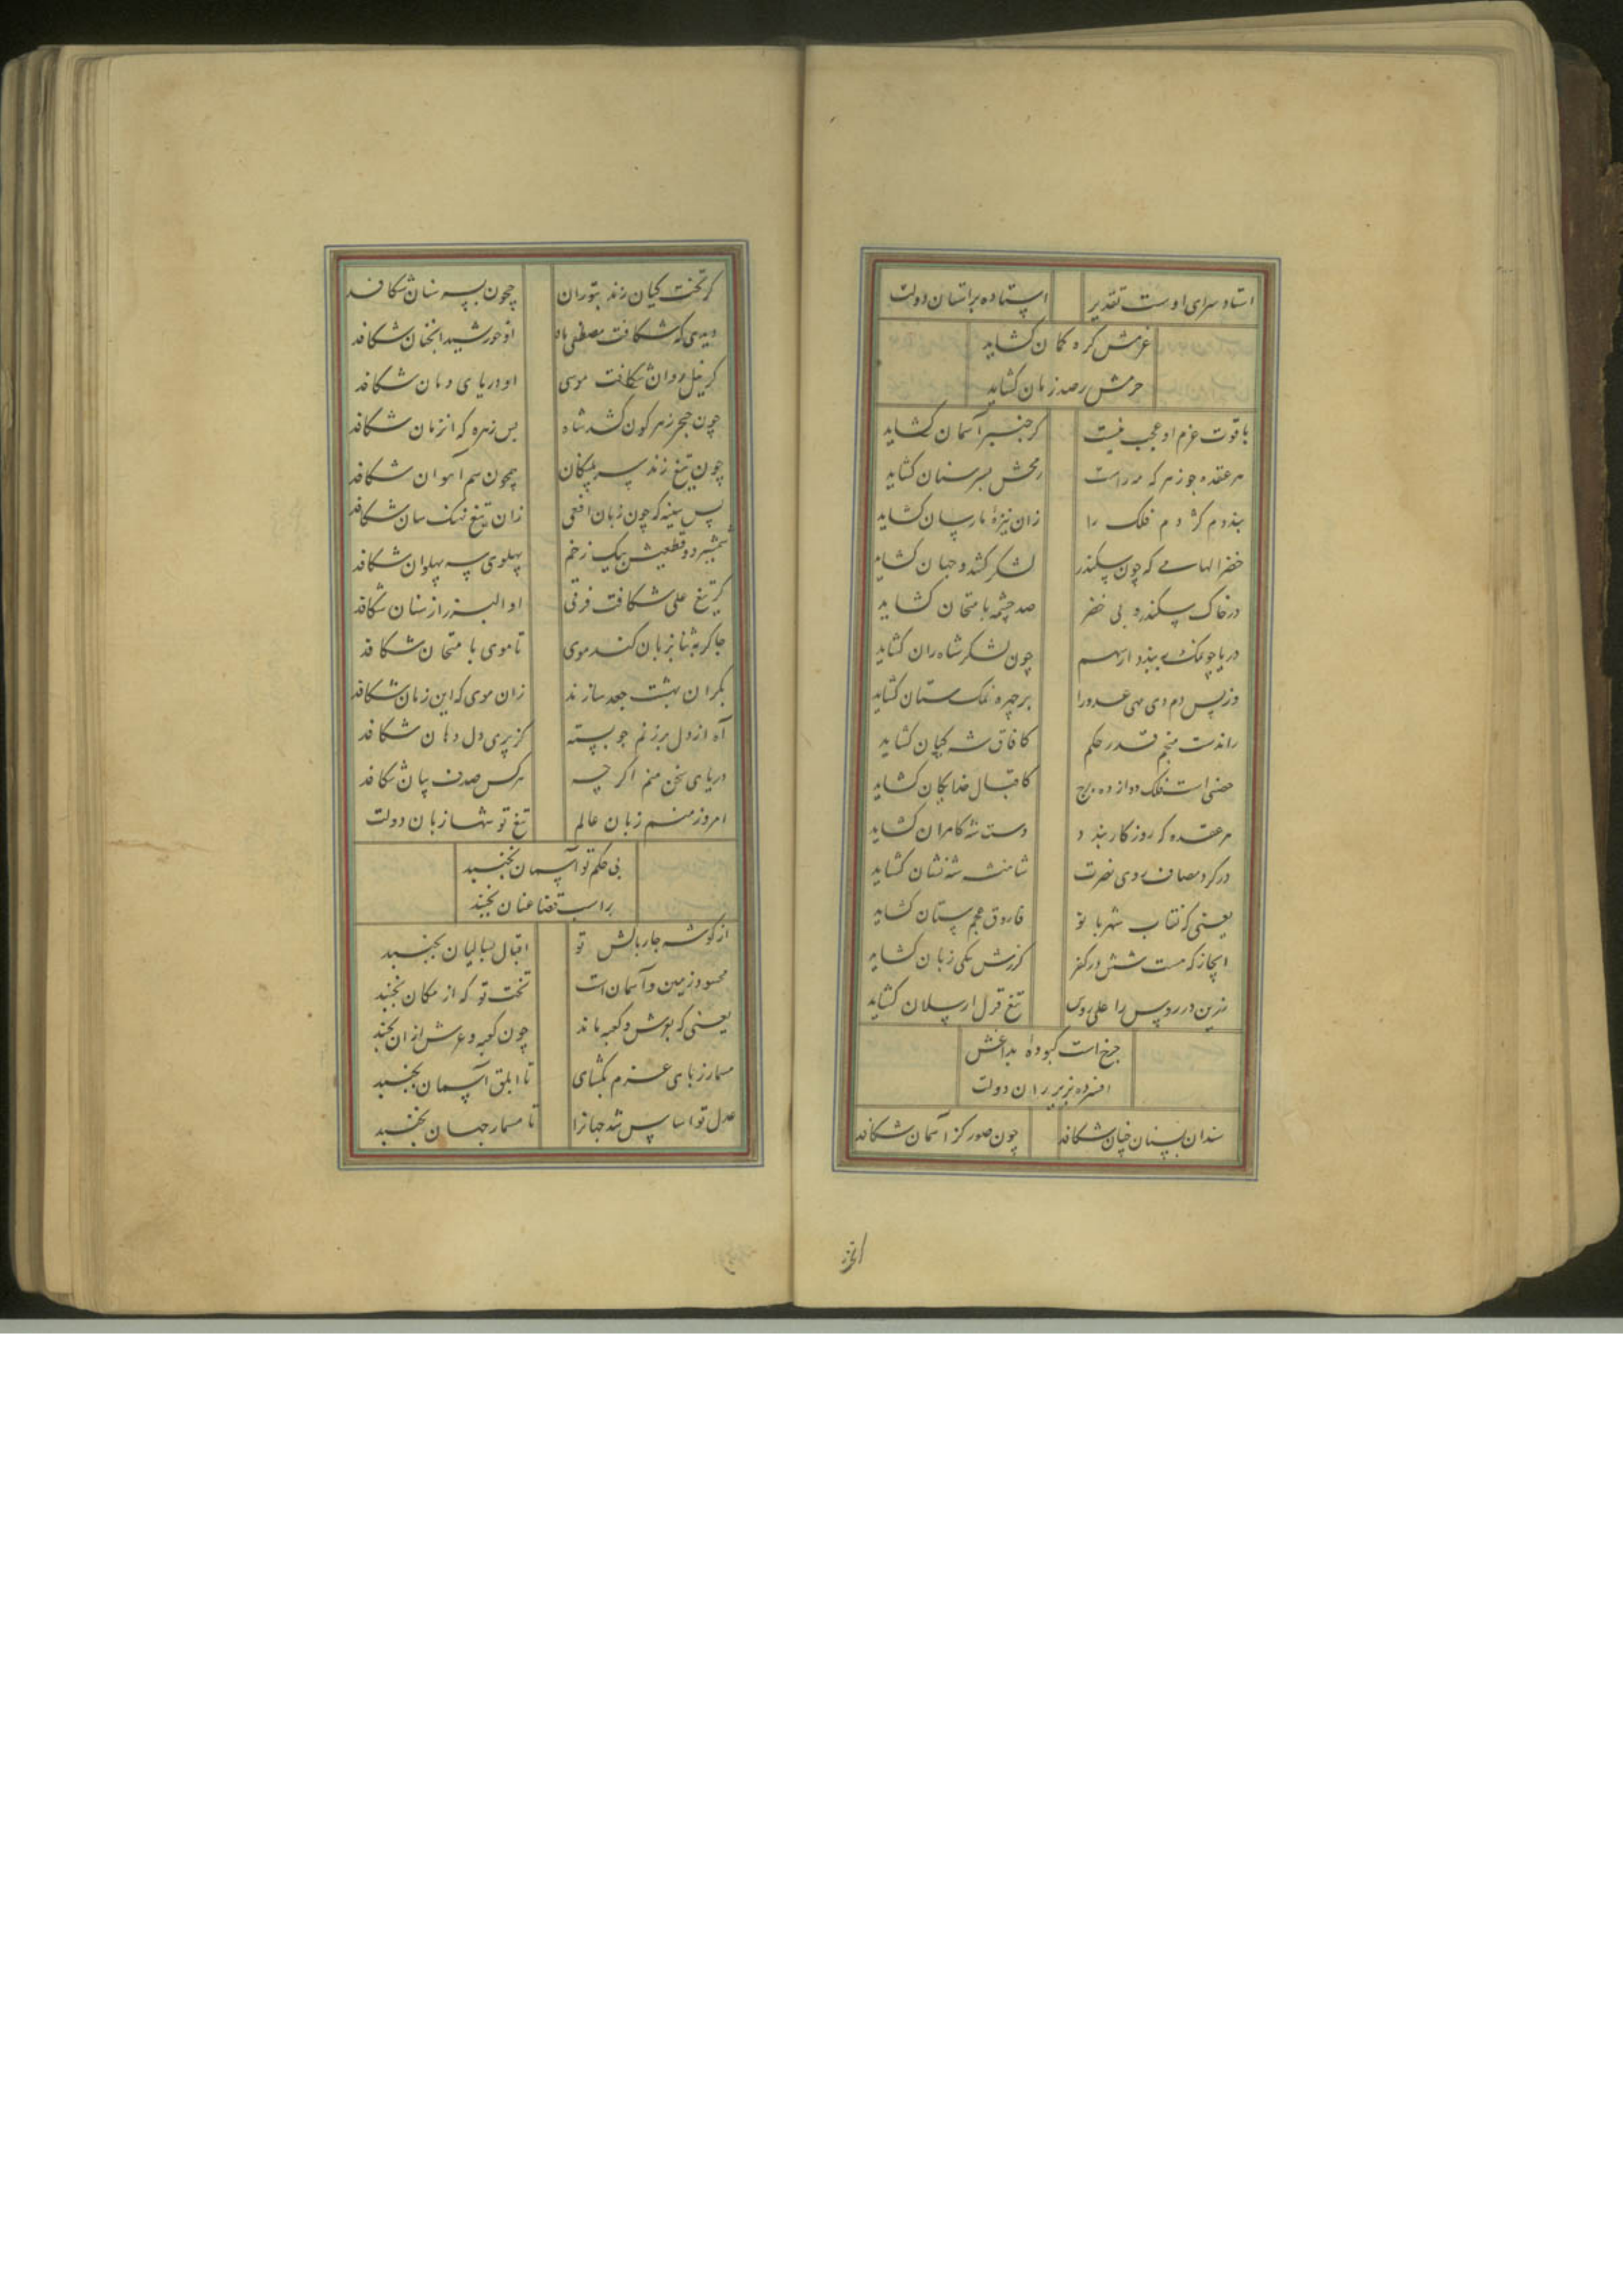 استاد سرای اوست تقدیر
ایستاده بر آستان دولت
عزمش گره گمان گشاید
حزمش رصد زمان گشاید
با قوت عزم او عجب نیست
گر چنبر آسمان گشاید
هر عقده جوزهر که مه راست
رمحش بسر سنان گشاید
بند دم کژدم فلک را
زان نیزهٔ مارسان گشاید
خضر الهامی که چون سکندر
لشکر کشد و جهان گشاید
در خاک سکندر و پی خضر
صد چشمه بامتحان گشاید
دریا چو نمک ببندد از سهم
چون لشکر شاه ران گشاید
وز پس دم دی مهی عدو را
بر چهره نمکستان گشاید
راندست منجم قدر حکم
کافاق شه کیان گشاید
حصنی است فلک دوازده برج
کاقبال خدایگان گشاید
هر عقده که روزگار بندد
دست شه کامران گشاید
در گرد مصاف روی نصرت
شاهنشه شه نشان گشاید
یعنی که نقاب شهربانو
فاروق عجم ستان گشاید
ابخاز که هست ششدر کفر
گرزش بیکی زبان گشاید
زین در روس را علی روس
تیغ قزل ارسلان گشاید
چرخ است کبودهٔ بداغش
افسرده بزیر ران دولت
سندان بسنان چنان شکافد
چون صور کز آسمان شکافد
گر تخت کیان زند بتوران
جیحون بسر سنان شکافد
دیدی که شکافت مصطفی ماه
او خورشید آنچنان شکافد
گر نیل روان شکافت موسی
او دریای دمان شکافد
چون خنجر زهرگون کشد شاه
بس زهره که آنزمان شکافد
چون تیغ زند سر پلنگان
همچون سم آهوان شکافد
پس سینه که چون زبان افعی
زان تیغ نهنگ سان شکافد
شمشیر دو قطعتش بیک زخم
پهلوی سه پهلوان شکافد
گر تیغ علی شکافت فرقی
او البرز از سنان شکافد
جا کرد ثنا بزبان کند موی
تا موی بامتحان شکافد
بکران بهشت جعد سازند
زان موی که این زمان شکافد
آه از دل پر زنم چو پسته
کز پری دل دهان شکافد
دریای سخن منم اگر چه
هر کس صدف بیان شکافد
امروز منم زبان عالم
تیغ تو شها زبان دولت
بی حکم تو آسمان نجنبد
بر اسب قضا عنان نجنبد
از گوشه چاربالش تو
اقبال بسالیان نجنبد
محسود زمین و آسمان است
تخت تو که از مکان نجنبد
یعنی که بعرش و کعبه ماند
چون کعبه و عرش از آن نجنبد
مسمار ز پای عزم بگشای
تا ابلق آسمان بجنبد
عدل تو اساس شد جهانرا
تا مسمار جهان نجنبد